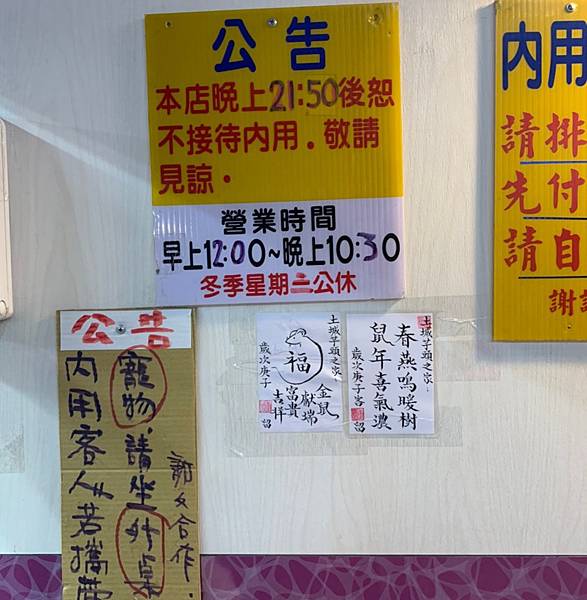 公告
本店晚上21:50後恕
不接待內用.敬請
見諒.
營業時間
早上12:00~晚上10:30
冬季星期二公休
內用
請排
先付
請自
謝
公告
內用客人若攜帶
寵物,請坐外桌
謝謝合作.
土城芋頭之家
福
金鼠
獻瑞
富貴
吉祥
歲次庚子
留
土城芋頭之家
春燕鳴暖樹
鼠年喜氣濃
歲次庚子客留